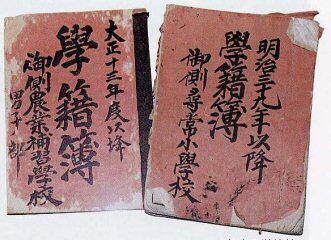 大正十三年度以降
學籍簿
御側農業補習學校
男子部
明治三九年以降
學籍簿
御側尋常小學校